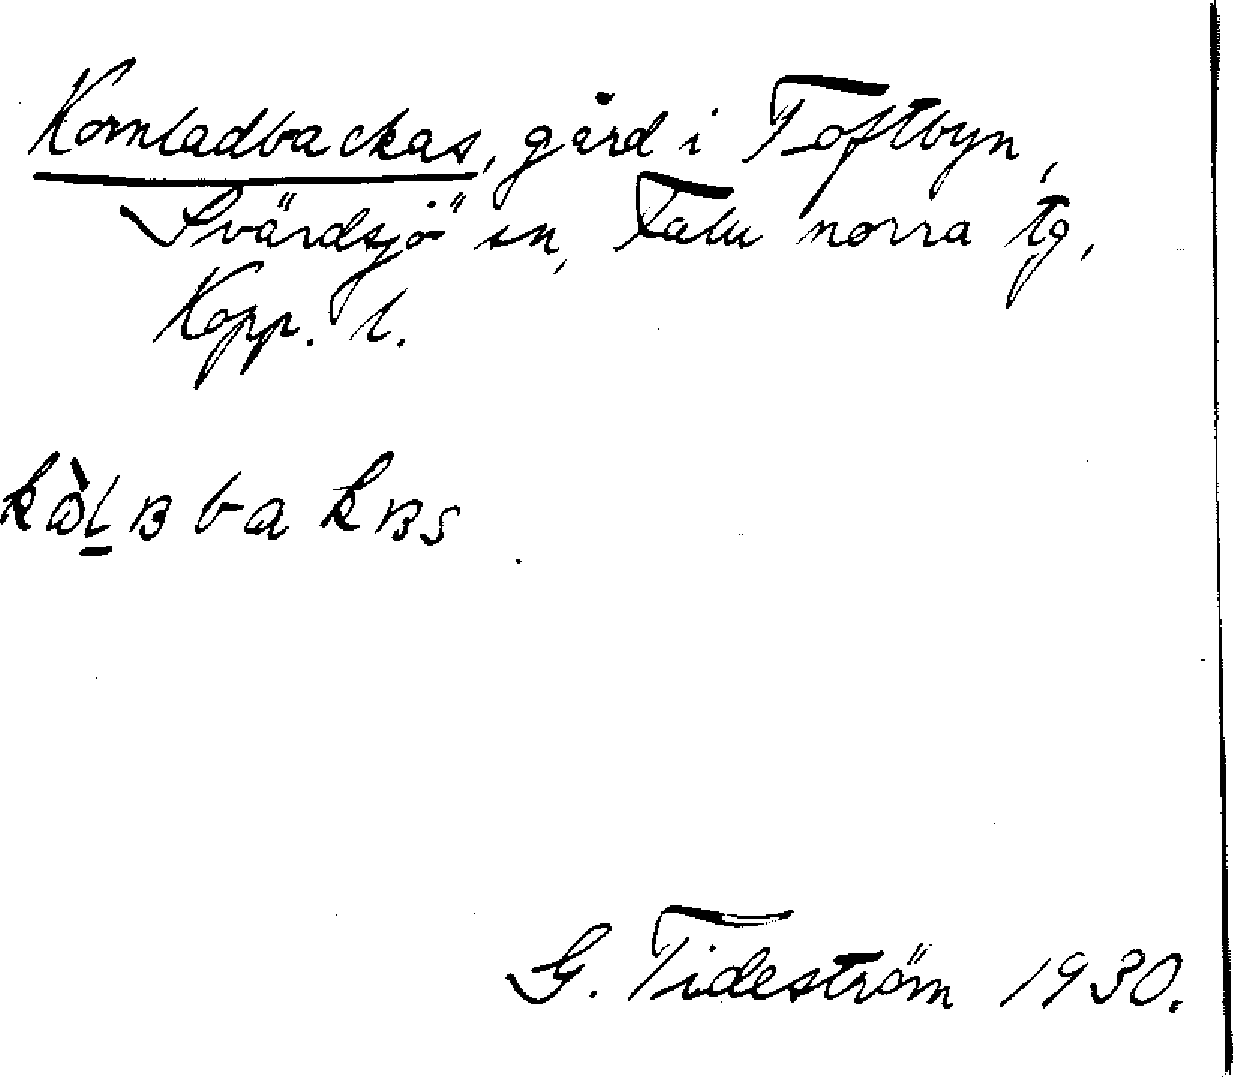 Kornladbackas, gård i Toftbyn,
Svärdsjö sn, Falu norra tg,
Kopp. l.
G. Tideström 1930.